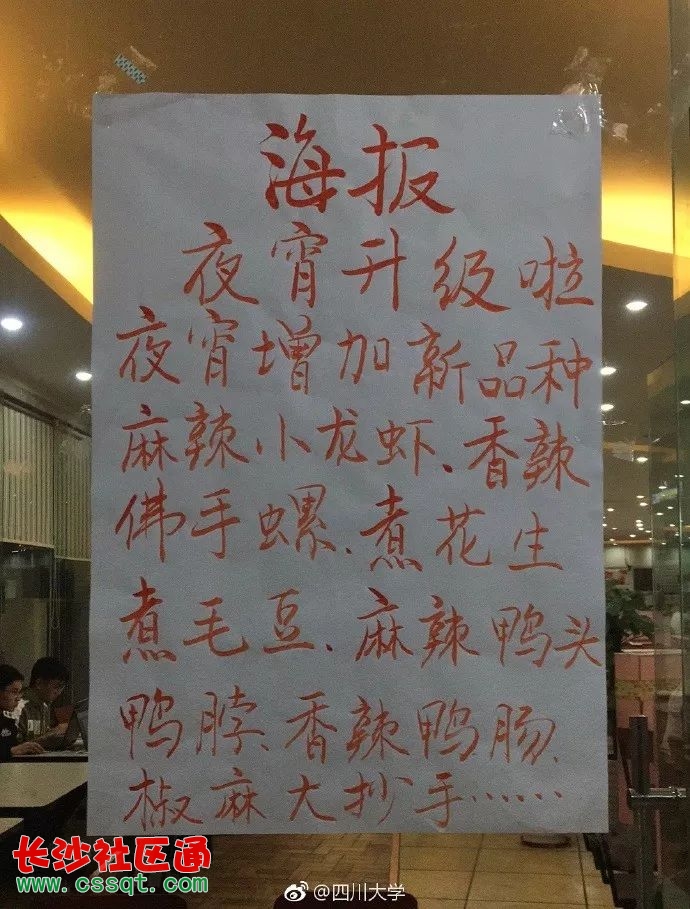 海报
夜宵升级啦
夜宵增加新品种
麻辣小龙虾、香辣
佛手螺、煮花生
煮毛豆、麻辣鸭头
鸭脖、香辣鸭肠、
椒麻大抄手……
长沙社区通
www.cssqt.com
@四川大学